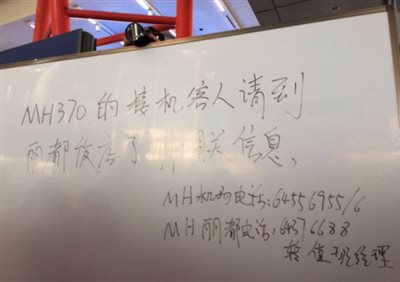 MH370的接机客人请到
丽都饭店了 相关信息、
MH机场电话:64556955/6
MH丽都电话:64376688
转值班经理